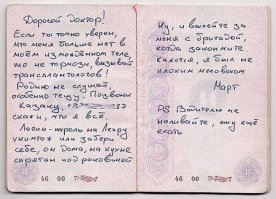 Дорогой доктор!
Если ты точно уверен,
что меня больше нет в
моём измождённом теле,
то не тормози, вызывай
трансплантологов!
Родню не слушай,
особенно тещу. Позвони
Казаку,
скажи, что я всё.
Логин-пароль на Лепру
уничтожь или забери
себе, он дома, на кухне
спрятан под раковиной
46 00
Ну, и выпейте за
меня с бригадой,
когда закончите
я был не
плохим человеком
Март
PS Водителю не
наливайте, ему ещё
ехать
46 00